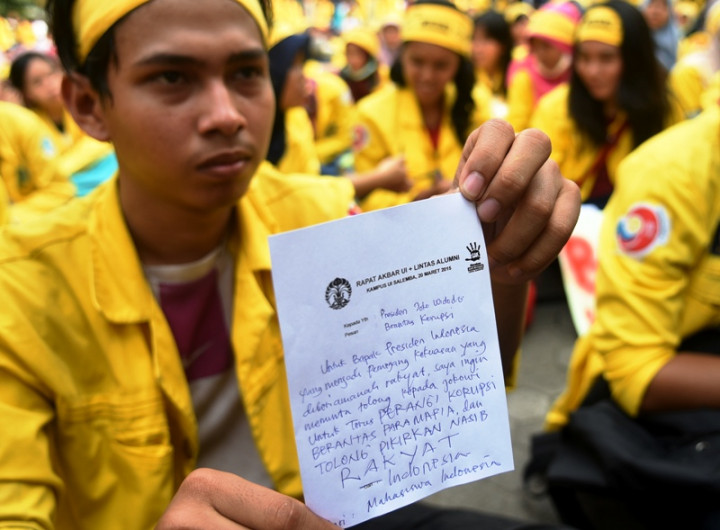 RAPAT AKBAR UI + LINTAS ALUMNI
KAMPUS UI SALEMBA, 20 MARET 2015
Kepada Yth : Presiden Joko Widodo
Pesan : Brantas Korupsi
Untuk Bapak Presiden Indonesia
yang menjadi Pemegang Kekuasaan yang
diberi amanah rakyat, saya ingin
meminta tolong kepada Jokowi
Untuk Terus PERANGI KORUPSI
BERANTAS PARA MAFIA, dan
TOLONG PIKIRKAN NASIB
RAKYAT
Indonesia
Mahasiswa Indonesia